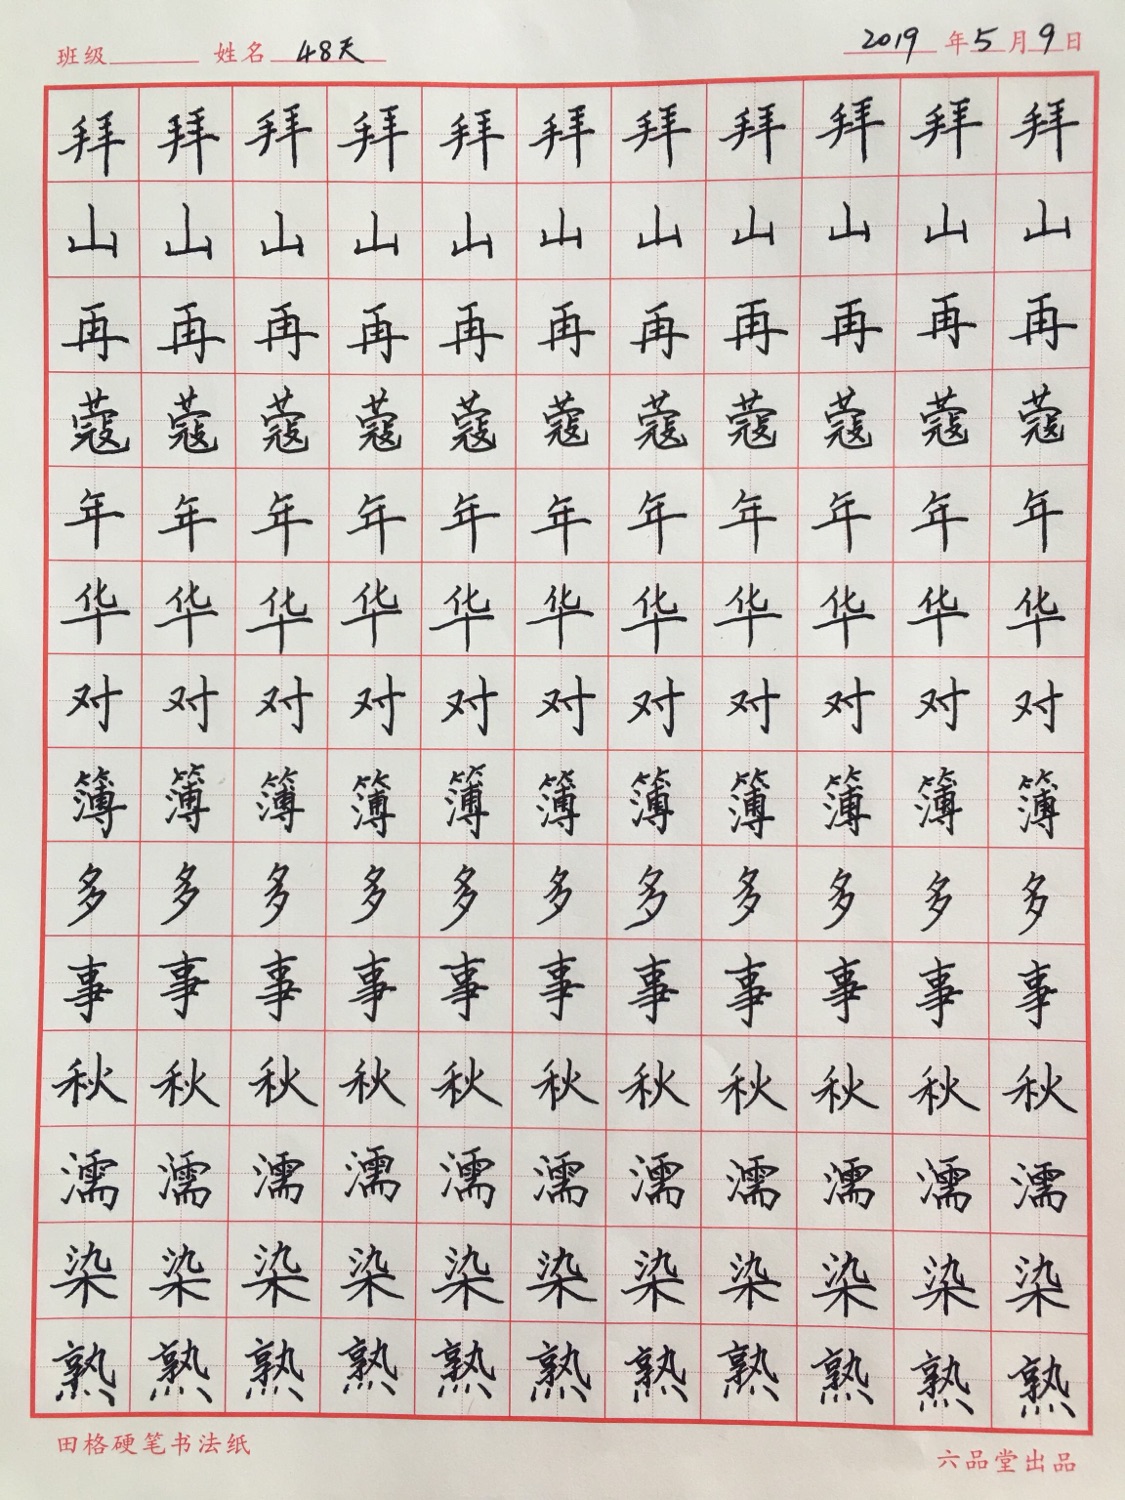 班级 姓名 48天 2019年5月9日
拜拜拜拜拜拜拜拜拜拜拜
山山山山山山山山山山山
再再再再再再再再再再再
蔻蔻蔻蔻蔻蔻蔻蔻蔻蔻蔻
年年年年年年年年年年年
华华华华华华华华华华华
对对对对对对对对对对对
簿簿簿簿簿簿簿簿簿簿簿
多多多多多多多多多多多
事事事事事事事事事事事
秋秋秋秋秋秋秋秋秋秋秋
濡濡濡濡濡濡濡濡濡濡濡
染染染染染染染染染染染
熟熟熟熟熟熟熟熟熟熟熟
田格硬笔书法纸 六品堂出品